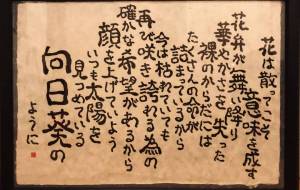 花は散ってこそ
意味を成す
花弁が舞い降り
華やかさを失った
裸のからだには
たくさんの命が
詰まっているから
今は枯れていても
再び咲き誇れる為の
確かな希望があるから
顔を上げていよう
いつも太陽を
見つめている
向日葵の
ように